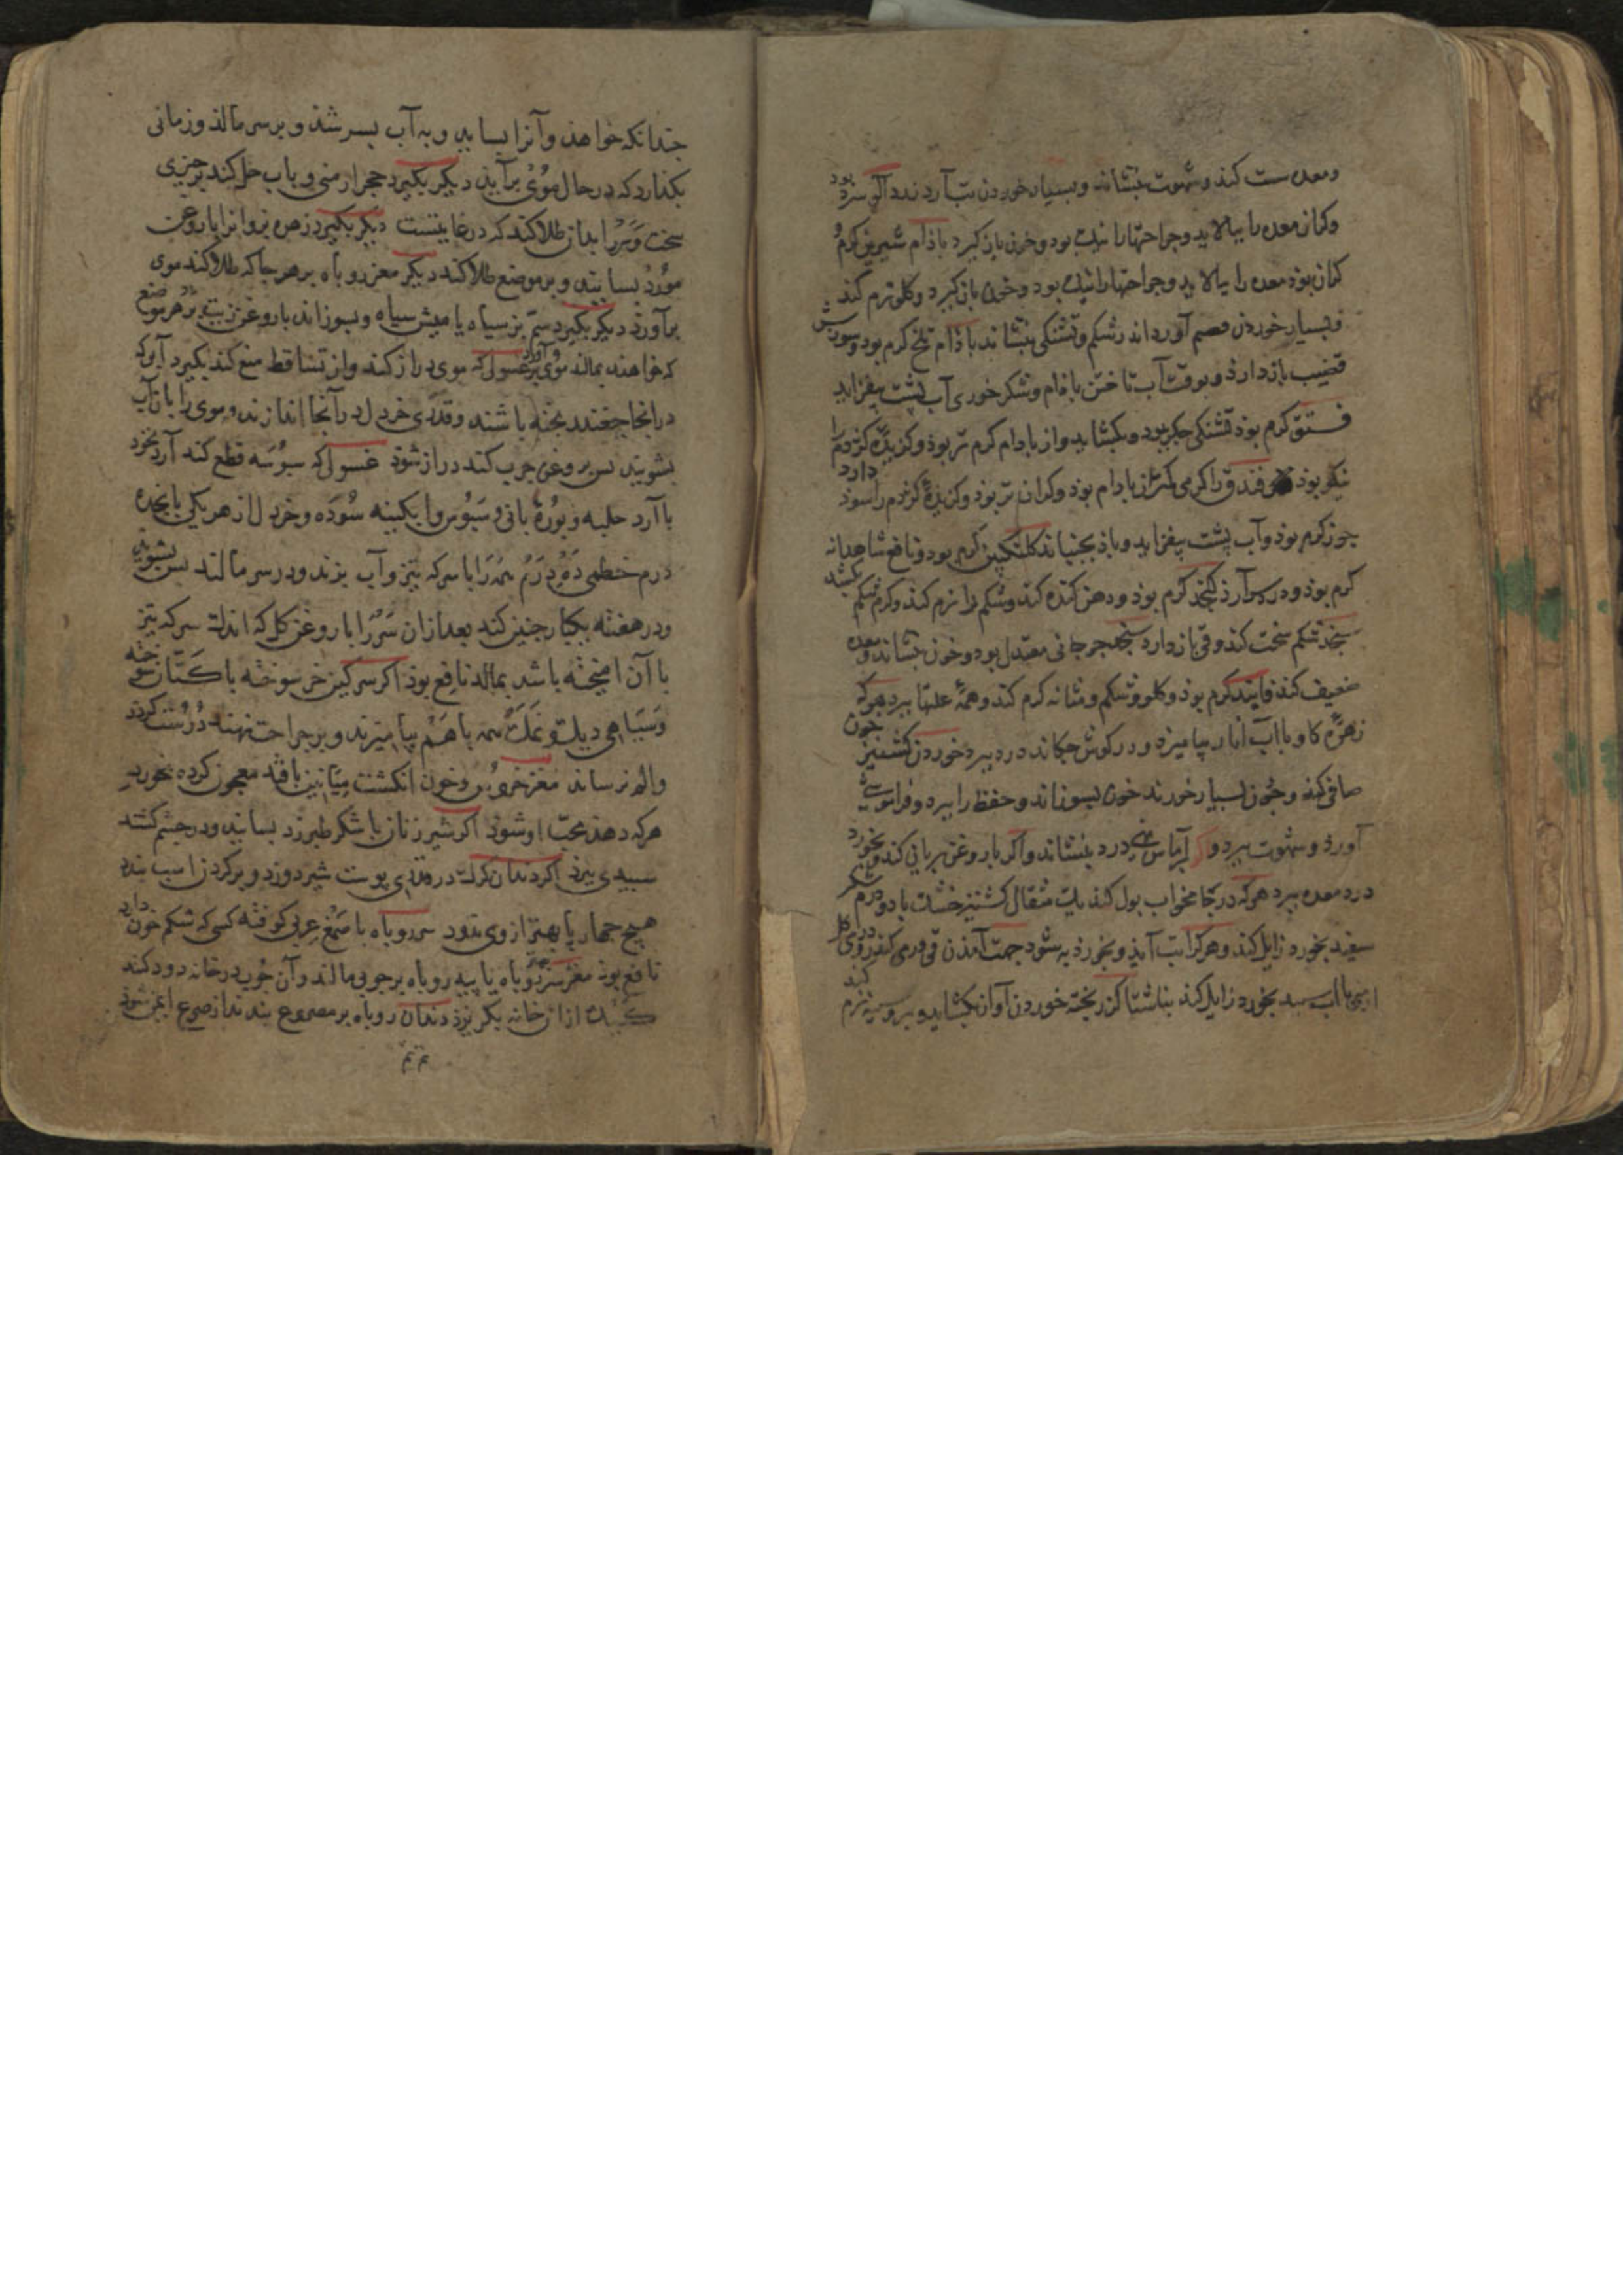 و معده سست کند و شهوت بنشاند و بسیار خوردن تب آرد آلو سرد بود
و معده را بیالاید و جراحتها را نیک بود و خون باز گیرد باذام شیرین گرم و
گران بوذ معده را بیالاید و جراحتها را نیک بود و خون بازگیرد و گلو نرم کند
و بسیار خوردن آورد اندر شکم و تشنگی بنشاند باذام تلخ گرم بود و سوزش
قضیب باز دارذ و بوقت آب تاختن باذام و شکر خوری آب پشت بیفزاید
فستق گرم بوذ تشنگی جگر بود و بگشاید و از بادام گرم تر بوذ و گزیدهٔ کژدم را
نیکو بوذ فندق را گرمی کمتر از بادام بوذ و گران تر بوذ و گزیدهٔ کژدم را سوذ دارد
جوز گرم بوذ و آب پشت بیفزاید و باذ بجنباند گلنگبین گرم بود و نافع شاهدانه
گرم بوذ و درد سر آرذ کنجد گرم بوذ و دهن گنده کند و شکم را نرم کند و کرم شکم بکشد
سنجد شکم سخت کند و قی باز دارد سنجد جرجانی معتدل بود و خون بنشاند و معده
ضعیف کند فانید گرم بوذ و گلو و شکم و مثانه گرم کند و همهٔ علتها ببرد هرکه
زهرهٔ گاو با آب انار بیامیزد و در گوش چکاند درد ببرد خوردن گشنیز خون
صافی کند و چون بسیار خورند خون بسوزاند و حفظ را ببرد و فراموشی
آورذ و شهوت ببرد و اگر بر آماس نهی درد بنشاند و اگر با روغن بریانی کند و بخورد
درد معده ببرد هرکه در جامه خواب بول کند یک مثقال گشنیز خشک با دو درم شکر
سفید بخورد زایل کند و هرکرا تب آید و بخورذ به شود جهت آمدن قی
بخورد زایل کند بناشتا گزر پخته خوردن آواز بگشاید و سینه نرم کند
چندانکه خواهند و آنرا بسایند و به آب بسرشند و بر سر مالند و زمانی
بگذارد که در حال موی برآید دیگر بگیرد حجر ارمنی و باب حل کند بر چیزی
سخت و سر را بدان طلا کند که در غایتست دیگر بگیرد زهره بز و آنرا با روغن
مورد بسایند و بر موضع طلا کند دیگر مغز روباه بر هر جا که طلا کند موی
برآورد دیگر بگیرد سم بز سیاه یا میش سیاه و بسوزاند با روغن زیت بر هر موضع
که خواهند بمالند موی برآورد غسول که موی دراز کند و از تساقط منع کند بگیرد آبی که
در آنجا چغندر پخته باشند و قدری خردل در آنجا اندازند و موی را بان آب
بشویند پس بروغن چرب کند دراز شود غسول که سبوسه قطع کند آرد نخود
با آرد حلبه و بوره نانی و سبوس و آبگینه سوده و خردل از هر یکی پانجده
درم خطمی ده درم همه را با سرکه تیز و آب بزند و در سر مالند پس بشویند
و در هفته یکبار چنین کند بعد از آن سر را با روغن گل که اندک سرکه تیز
با آن آمیخته باشد بمالد نافع بوذ اگر سرگین خر سوخته با کتان سوخته
و سیاهی دیک و نمک همه با هم بیامیزند و بر جراحت نهند درست گردد
و الم نرساند مغز خروس و خون انگشت میانین بافند معجون کرده بخورد
هرکه دهند محب او شود اگر شیر زنان با شکر طبرزد بسایند و در چشم کشند
سبیدی ببرد اگر دندان گرگ در پوست شیر دوزد و بر گردن اسب بندد
هیچ چهارپا بهتر از وی ندود سر روباه با صمغ عربی کوفته کسی که شکم خون دارد
نافع بوذ مغز سر روباه یا پیه روباه بر چوبی مالند و آن چوب در خانه دود کند
کیک از آن خانه بگریزد دندان روباه بر مصروع بندند از صرع ایمن شود